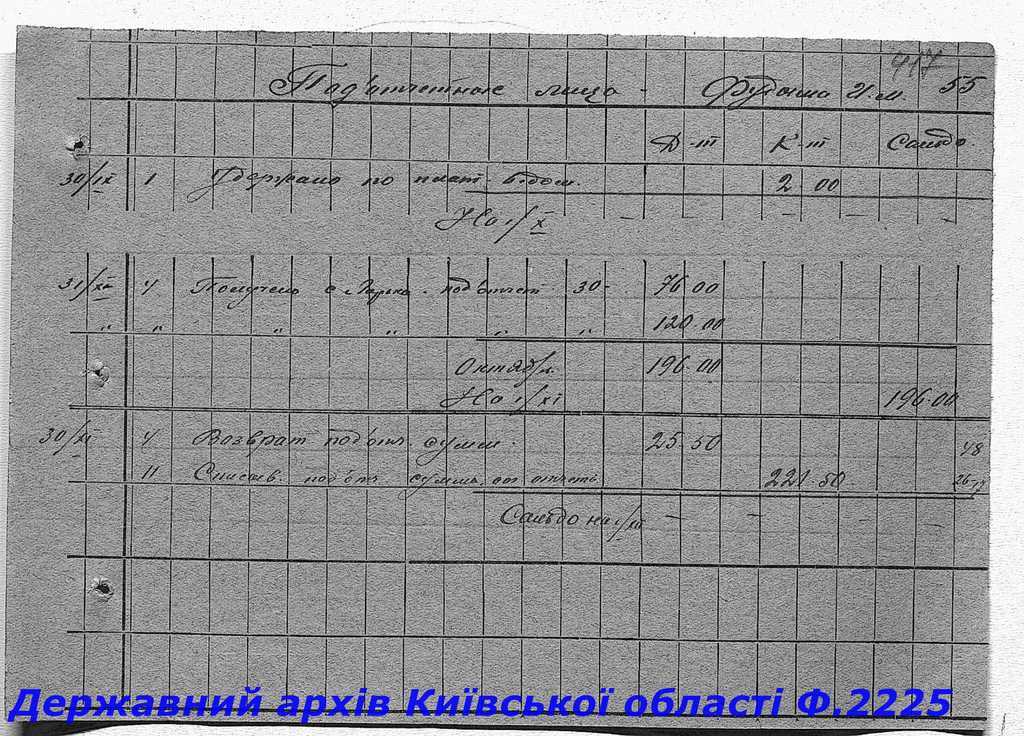 417
Под'отчетные лица - 55
Д-т К-т Сальдо
30/IX 1 Удержано по плат. ведом. 2 00
На 1/X — — — —
31/X 4 Получено с под'отчет 30- 76 00
" " " " " " 120.00
Октяб/м. 196.00
На 1/XI 196-00
30/XI 4 Возврат под'отч. сумм. 25.50 48
11 Списыв. под'отч сумм. по отчету 221.50
Сальдо на 1/XII — — — —
Державний архів Київської області Ф.2225